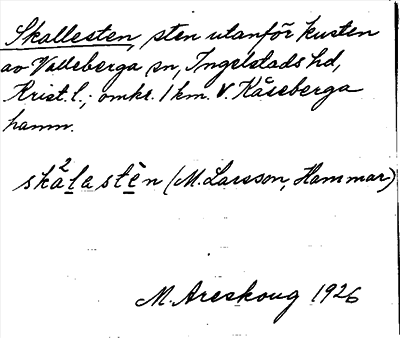 Skallesten, sten utanför kusten
av Valleberga sn, Ingelstads hd,
Krist. l.; omkr. 1 km. V. Kåseberga
hamn.
skå²la stèn (M. Larsson, Hammar)
M. Areskoug 1926